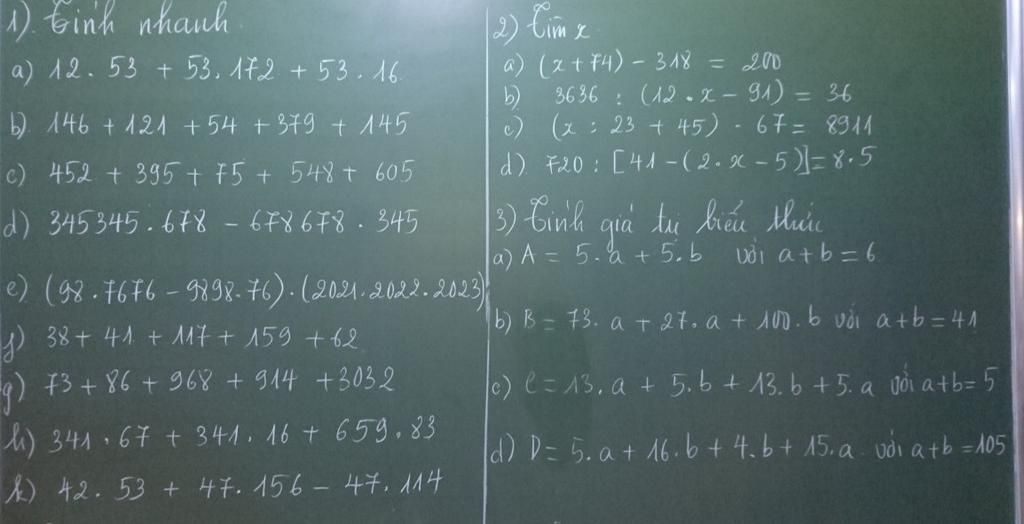 1). Tính nhanh
a) 12 . 53 + 53 . 172 + 53 . 16
b) 146 + 121 + 54 + 379 + 145
c) 452 + 395 + 75 + 548 + 605
d) 345345 . 678 - 678678 . 345
e) (98 . 7676 - 9898 . 76) . (2021 . 2022 . 2023)
f) 38 + 41 + 117 + 159 + 62
g) 73 + 86 + 968 + 914 + 3032
h) 341 . 67 + 341 . 16 + 659 . 83
k) 42 . 53 + 47 . 156 - 47 . 114
2) Tìm x
a) (x + 74) - 318 = 200
b) 3636 : (12 . x - 91) = 36
c) (x : 23 + 45) . 67 = 8911
d) 720 : [41 - (2 . x - 5)] = 8 . 5
3) Tính giá trị biểu thức
a) A = 5 . a + 5 . b với a + b = 6
b) B = 73 . a + 27 . a + 100 . b với a + b = 41
c) C = 13 . a + 5 . b + 13 . b + 5 . a với a + b = 5
d) D = 5 . a + 16 . b + 4 . b + 15 . a với a + b = 105